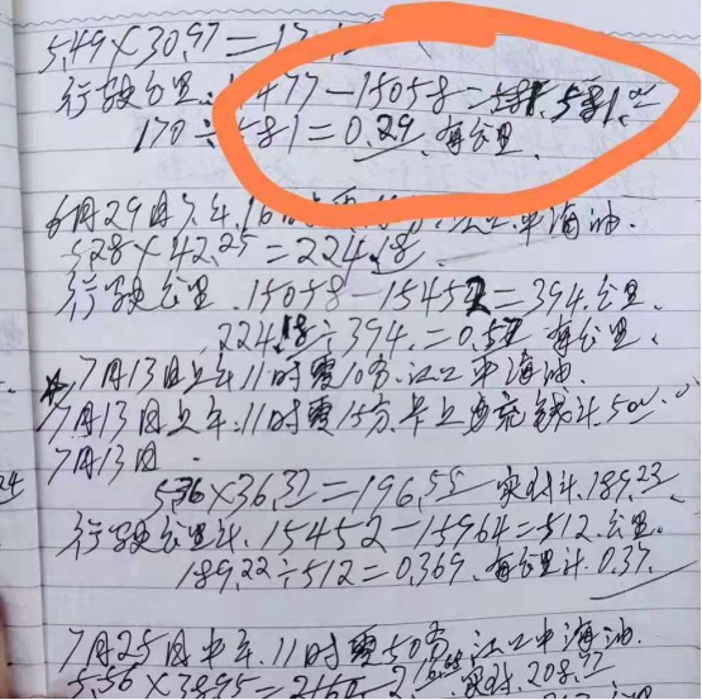 5.49×30.97=17
行驶公里:1477-15058=581.581.00
170÷581=0.29.每公里.
6月29日下午.16 中海油.
5.28×42.25=224.18
行驶公里.15058-15452=394.公里.
224.18÷394.=0.57 每公里.
7月13日上午11时零10分.江口中海油.
7月13日上午.11时零15分.卡上再充钱计.500.00
7月13日.
5.36×36.32=196.55 实付计.189.23.
行驶公里计.15452-15964=512.公里.
189.22÷512=0.369.每公里计.0.37.
7月25日中午.11时零50分.江口中海油.
5.56×38.95=216 实付.208.77